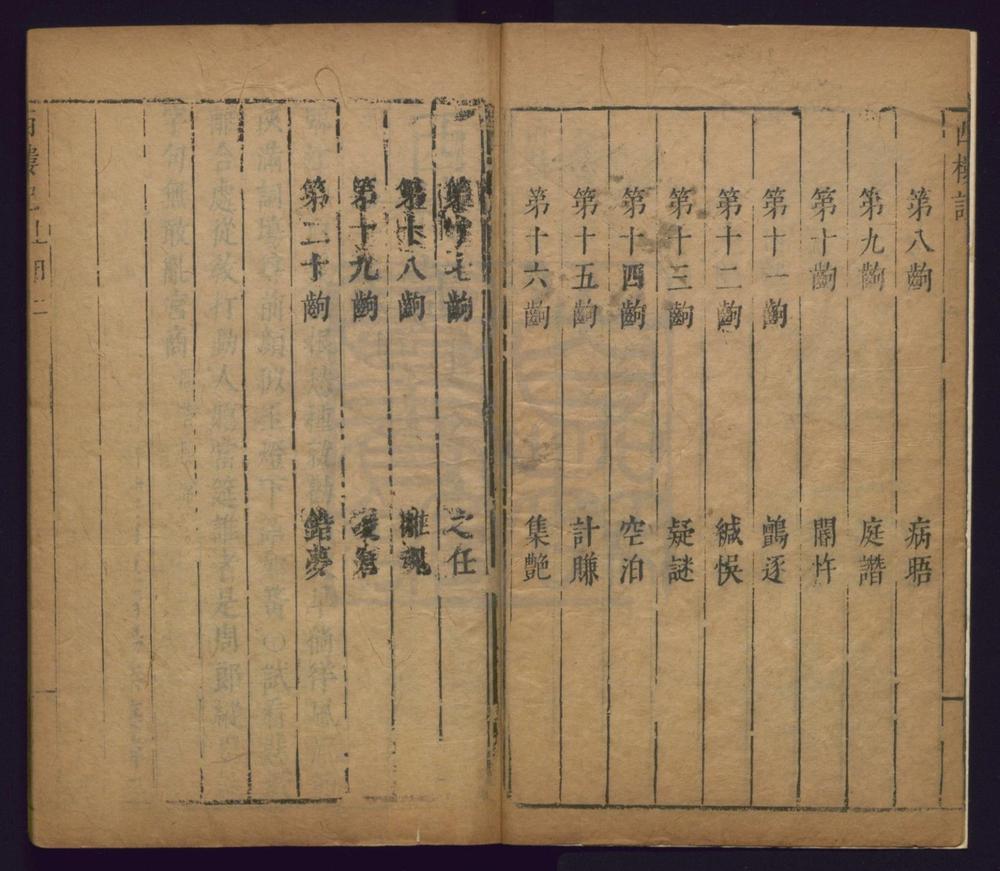 西樓記
第八齣 病晤
第九齣 庭譖
第十齣 忤
第十一齣 鸇逐
第十二齣 緘悞
第十三齣 疑謎
第十四齣 空泊
第十五齣 計賺
第十六齣 集艷
第十七齣 之任
第十八齣 離魂
第十九齣 凌窘
第二十齣 錯夢
西樓記上目二